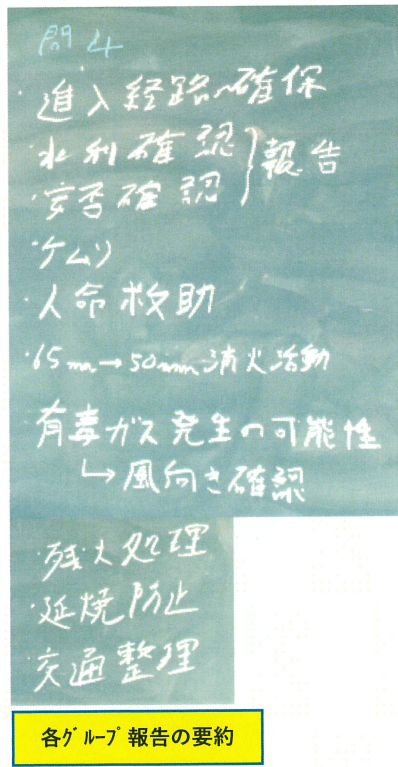 問4
・進入経路の確保
・水利確認
・安否確認 }報告
・ケムリ
・人命救助
・65mm→50mm消火活動
有毒ガス発生の可能性
↳風向き確認
・残火処理
・延焼防止
・交通整理
各グループ報告の要約